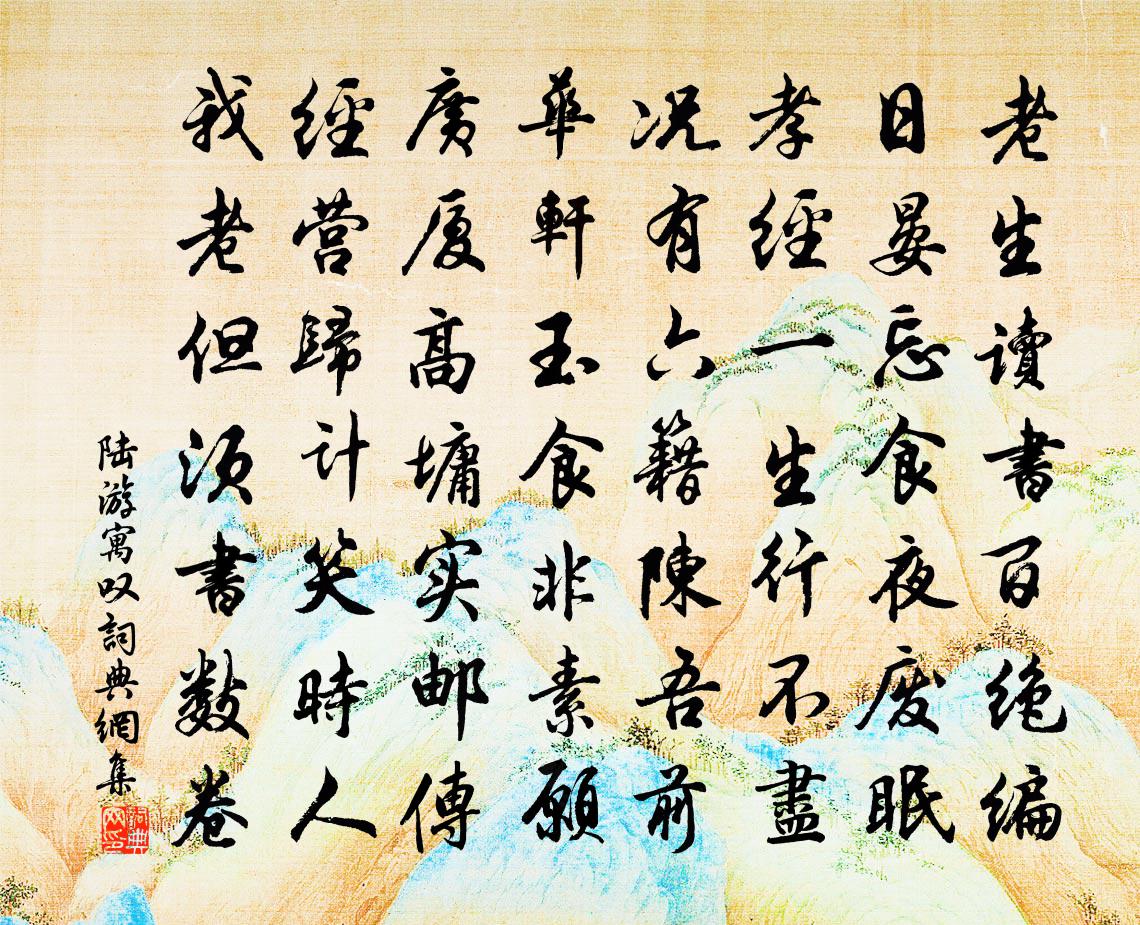 老生讀書百絶編
日晏忘食夜废眠
孝經一生行不盡
况有六籍陳吾前
華軒玉食非素願
廣厦高墉实邮傳
經营歸计笑時人
我老但须書数卷
陆游寓叹詞典網集
詞典